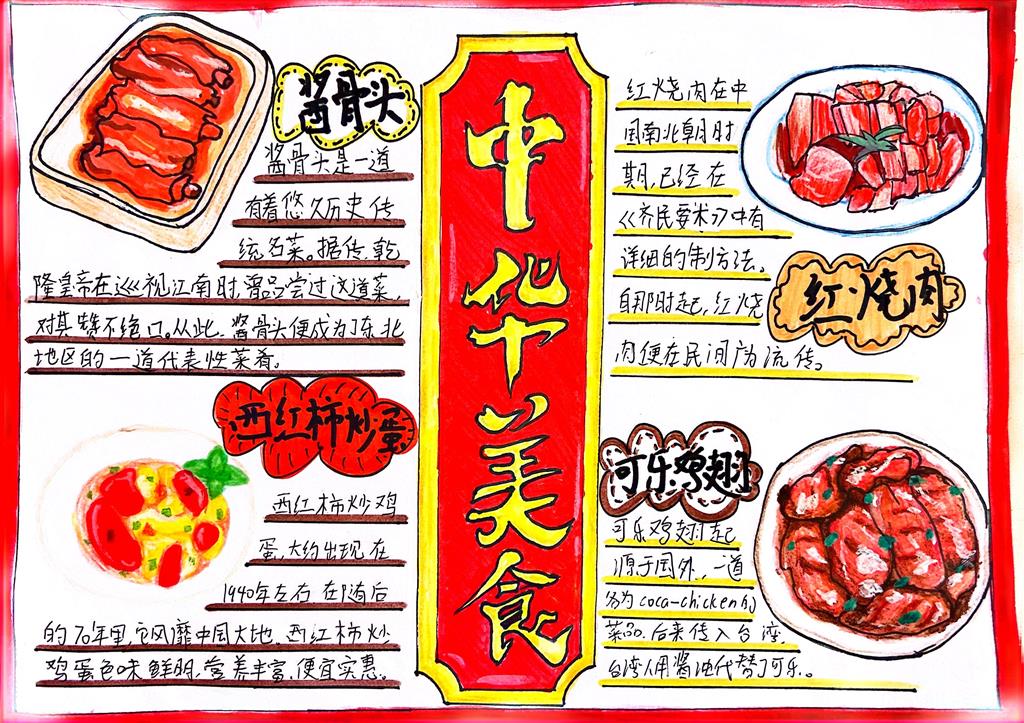 中华美食
酱骨头
酱骨头是一道
有着悠久历史传
统名菜。据传,乾
隆皇帝在巡视江南时,曾品尝过这道菜,
对其赞不绝口。从此,酱骨头便成为了东北
地区的一道代表性菜肴。
西红柿炒蛋
西红柿炒鸡
蛋,大约出现在
1940年左右 在随后
的70年里,它风靡中国大地。西红柿炒
鸡蛋色味鲜明,营养丰富,便宜实惠。
红烧肉在中
国南北朝时
期,已经在
《齐民要术》中有
详细的制方法。
自那时起,红烧
肉便在民间广为流传。
红烧肉
可乐鸡翅
可乐鸡翅起
源于国外,一道
名为coca-chicken的
菜品,后来传入台湾,
台湾人用酱油代替了可乐。